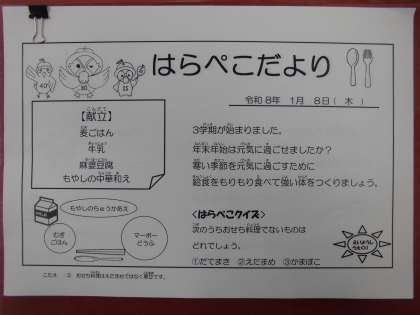 はらぺこだより
令和8年 1月 8日(木)
【献立】
麦ごはん
牛乳
麻婆豆腐
もやしの中華和え
3学期が始まりました。
年末年始は元気に過ごせましたか?
寒い季節を元気に過ごすために
給食をもりもり食べて強い体をつくりましょう。
もやしのちゅうかあえ
むぎ
ごはん
マーボー
どうふ
<はらぺこクイズ>
次のうちおせち料理でないものは
どれでしょう。
①だてまき ②えだまめ ③かまぼこ